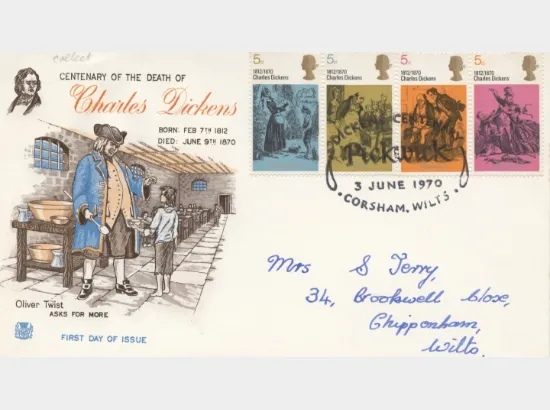 collect
CENTENARY OF THE DEATH OF
Charles Dickens
BORN: FEB 7TH 1812
DIED: JUNE 9TH 1870
5d 5d 5d 5d
1812/1870 1812/1870 1812/1870 1812/1870
Charles Dickens Charles Dickens Charles Dickens Charles Dickens
DICKENS CENTENARY
Pickwick
3 JUNE 1970
• CORSHAM, WILTS •
Mrs S Terry,
34, Brookwell Close,
Chippenham,
Wilts.
Oliver Twist
ASKS FOR MORE
FIRST DAY OF ISSUE